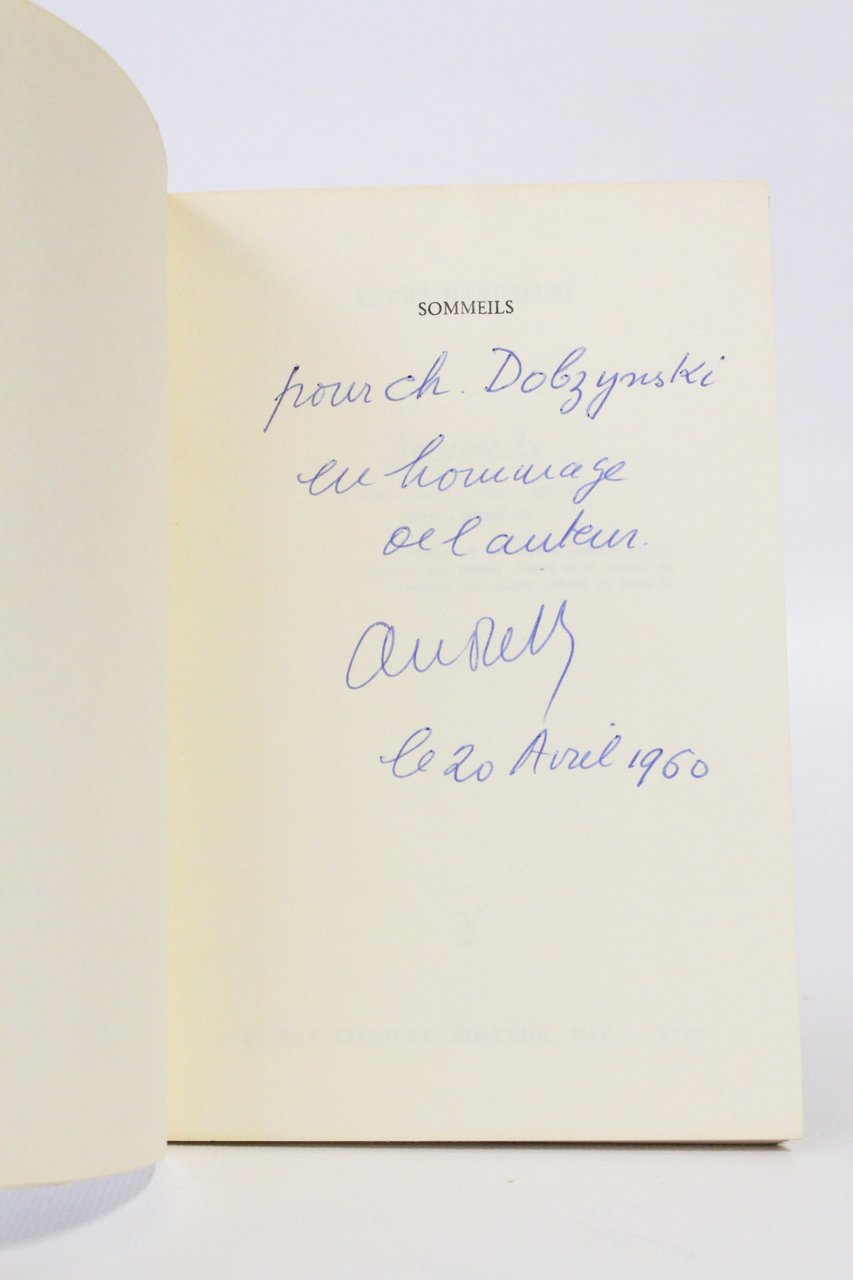 SOMMEILS
pour ch. Dobzynski
en hommage
de l'auteur.
le 20 Avril 1960